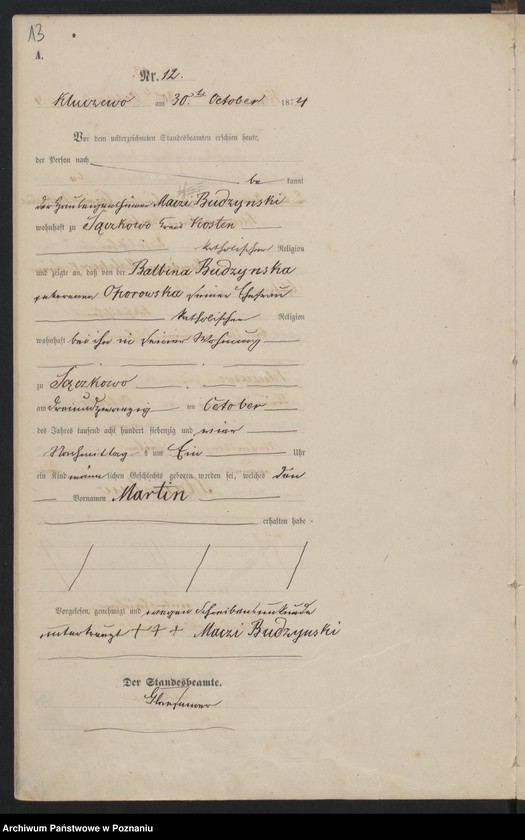 13
A.
Nr. 12.
Kluczewo am 30.ten October 1874
Vor dem unterzeichneten Standesbeamten erschien heute,
der Person nach
be kannt
der Hauseigenthümer Maczi Budzynski
wohnhaft zu Sączkowo Kreis Kosten
katholischer Religion
und zeigte an, daß von der Balbina Budzynska
geborenen Oporowska seiner Ehefrau
katholischer Religion
wohnhaft bei ihm in seiner Wohnung
zu Sączkowo
am dreiundzwanzig ten October
des Jahres tausend acht hundert siebenzig und vier
Nachmittag s um Ein Uhr
ein Kind männ lichen Geschlechts geboren worden sei, welches den
Vornamen Martin
erhalten habe
Vorgelesen, genehmigt und wegen Schreibensunkunde
unterkreuzt + + + Maczi Budzynski
Der Standesbeamte.
Archiwum Państwowe w Poznaniu